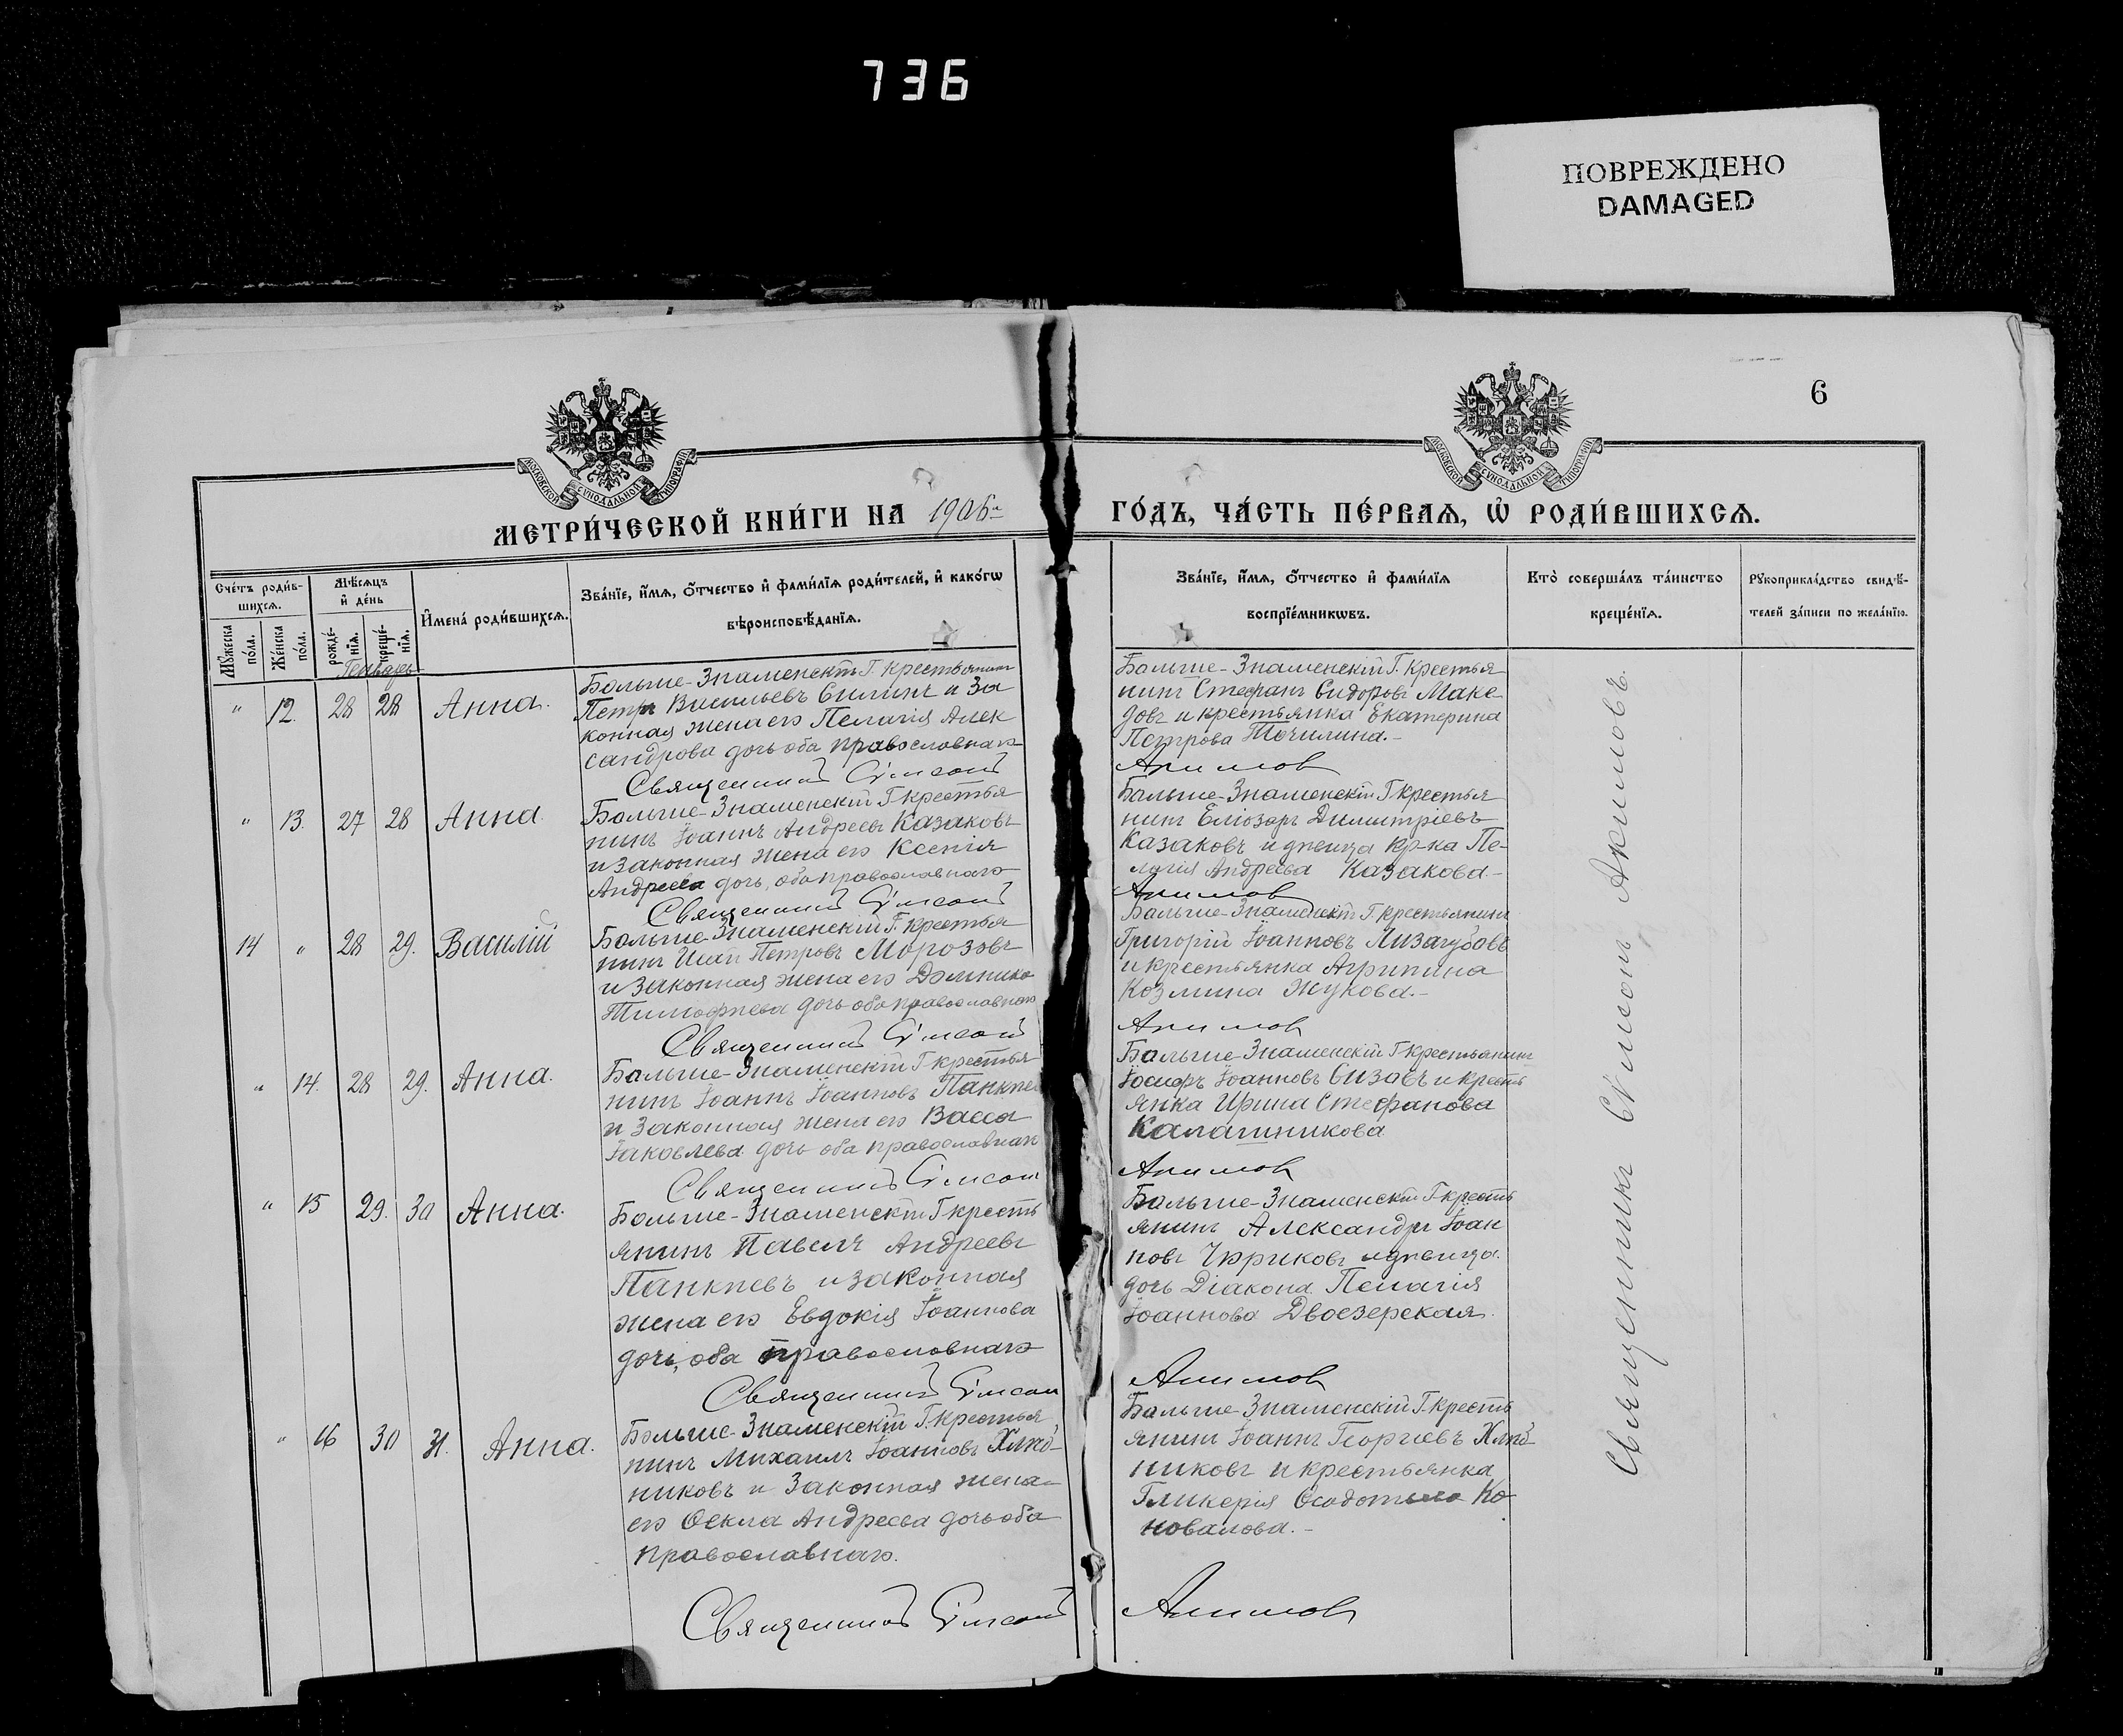 736
ПОВРЕЖДЕНО
DAMAGED
6
МОСКОВСКОЙ СѴНОДАЛЬНОЙ ТИПОГРАФІИ
МОСКОВСКОЙ СѴНОДАЛЬНОЙ ТИПОГРАФІИ
МЕТРИ́ЧЕСКОЙ КНИ́ГИ НА 1906й
ГО́ДЪ, ЧА́СТЬ ПЕ́РВАѦ, Ѡ҆ РОДИ́ВШИХСѦ.
Сче́тъ роди́в-
шихсѧ.
Мꙋ́жеска по́ла.
Же́нска по́ла.
Мѣ́сѧцъ
и҆ де́нь
рожде́-
нїѧ.
креще́-
нїѧ.
И҆мена̀ роди́вшихсѧ.
Зва́нїе, и҆́мѧ, ѻ҆́тчество и҆ фами́лїѧ роди́телей, и҆ како́гѡ
вѣроисповѣ́данїѧ.
Зва́нїе, и҆́мѧ, ѻ҆́тчество и҆ фами́лїѧ
воспрїе́мникѡвъ.
Кто̀ соверша́лъ та́инство
креще́нїѧ.
Рꙋкоприкла́дство свидѣ́-
телей за́писи по жела́нїю.
Генварь
" 12. 28 28 Анна.
Больше-Знаменскій Г. крестьянинъ
Петръ Васильевъ Силинъ и за
конная жена его Пелагія Алек
сандрова дочь оба православнаго
Священникъ Сѵмеонъ
Больше-Знаменскій Г. крестья
нинъ Стефанъ Сидоровъ Маке
довъ и крестьянка Екатерина
Петрова Точилина.-
Акимовъ
" 13. 27 28 Анна
Больше-Знаменскій Г крестья
нинъ Іоаннъ Андреевъ Казаковъ
и законная жена его Ксенія
Андреева дочь, оба православнаго
Священникъ Сѵмеонъ
Больше-Знаменскій Г крестья
нинъ Еліозаръ Димитріевъ
Казаковъ и дѣвица кр-ка Пе-
лагія Андреева Казакова-
Акимовъ
14 " 28 29. Василій
Больше-Знаменскій Г. крестья
нинъ Исай Петровъ Морозовъ
и законная жена его Домника
Тимофѣева дочь оба православнаго
Священникъ Сѵмеонъ
Больше-Знаменскій Г крестьянинъ
Григорій Іоанновъ Лизагубовъ
и крестьянка Агрипина
Козмина Жукова.-
Акимовъ
" 14. 28 29. Анна.
Больше-Знаменскій Г крестья
нинъ Іоаннъ Іоанновъ Панкѣев
и законная жена его Васса
Іаковлева дочь оба православнаго
Священникъ Сѵмеонъ
Больше-Знаменскій Г крестьянинъ
Іосифъ Іоанновъ Сизовъ и кресть
янка Ирина Стефанова
Калашникова
Акимовъ
" 15 29. 30 Анна.
Больше-Знаменскій Г кресть
янинъ Павелъ Андреевъ
Панкѣевъ и законная
жена его Евдокія Іоаннова
дочь, оба православнаго
Священникъ Сѵмеонъ
Больше-Знаменскій Г кресть
янинъ Александръ Іоан
новъ Чуриковъ и дѣвица
дочь Діакона Пелагія
Іоаннова Двоезерская.
Акимовъ
" 16 30 31. Анна.
Больше-Знаменскій Г. крестья
нинъ Михаилъ Іоанновъ Хлѣб-
никовъ и законная жена
его Ѳекла Андреева дочь оба
православнаго.
Священникъ Сѵмеонъ
Больше-Знаменскій Г. кресть
янинъ Іоаннъ Георгіевъ Хлѣб-
никовъ и крестьянка
Гликерія Ѳеодотова Ко
новалова.-
Акимовъ
Священникъ Сѵмеонъ Акимовъ.